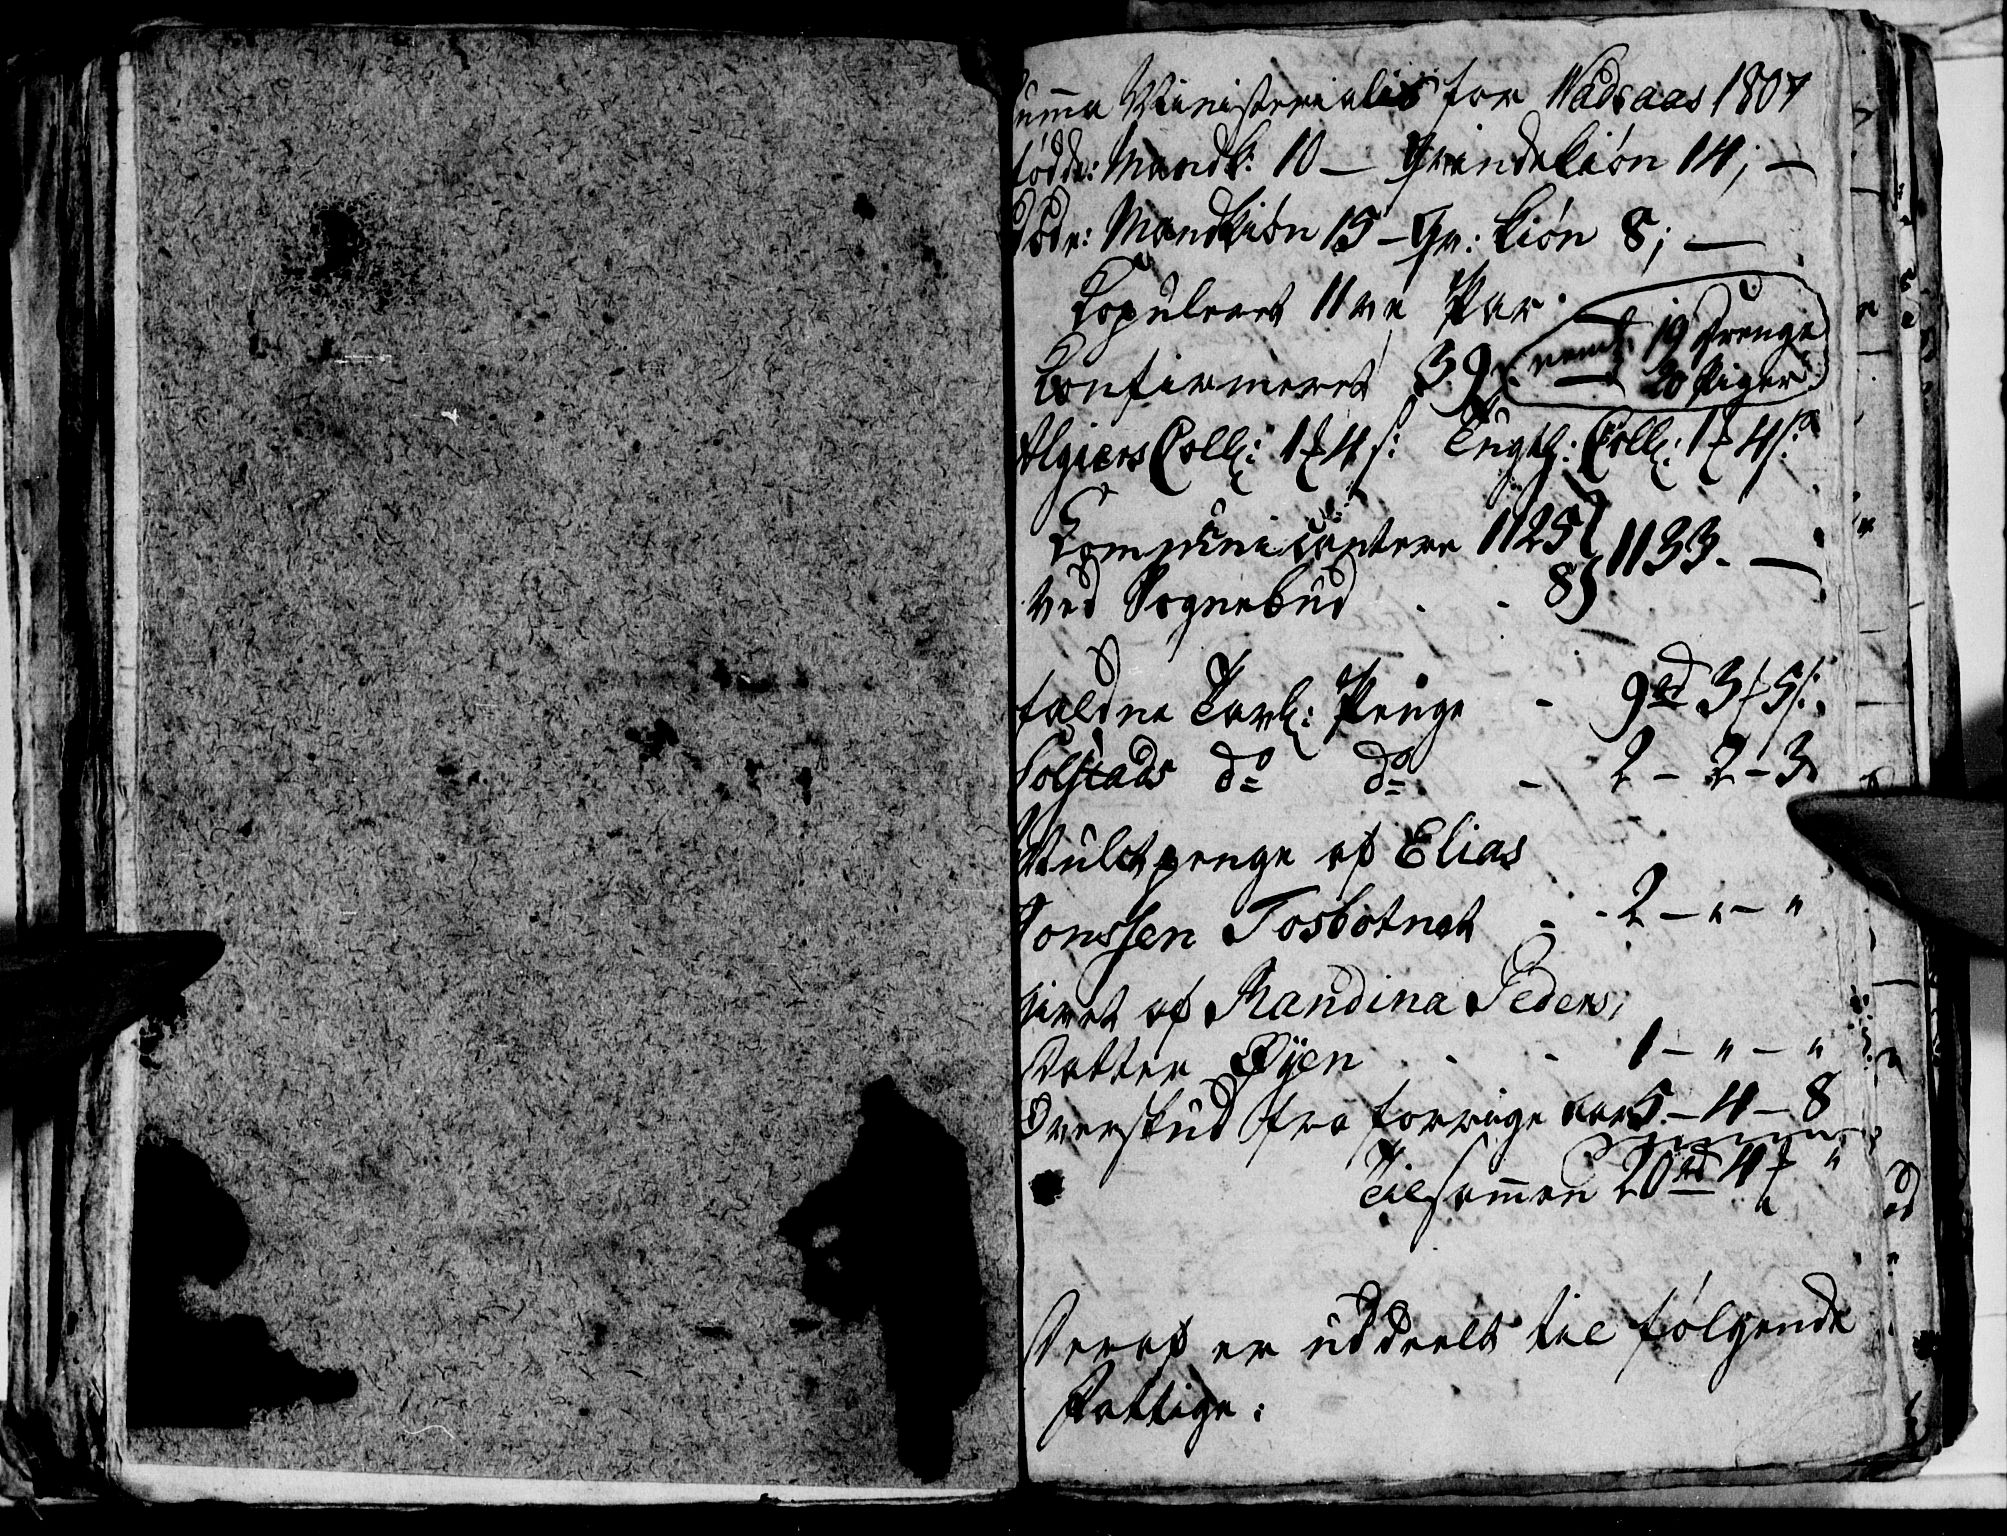 umma Ministerialis for Wadsaas 1807
födde: Mandk: 10 — Qvindekiön 14; —
Döde: Mandkiön 15 – Qv: kiön 8; —
Copuleret 11ve Par
Confirmeret 39 neml: 19 Drenge
20 Piger
Algiers Coll: 1 4 s: Engl: Coll: 1 4 s:
Communicantere 1125
1133. —
ved Sognebud . . 8
faldne Tavl: Penge - 9 rd 3 5 s:
Solstads do do - 2 – 2 – 3
Mulctpenge af Elias
Jonssen Tosbotnet - - 2 – " – "
givet af Randina Peders,
Datter Øyen . . 1 – " – "
Overskud fra forrige aar 5 – 4 – 8
Tilsammen 20 rd 4 "
Deraf er uddeelt til følgende
Fattige: